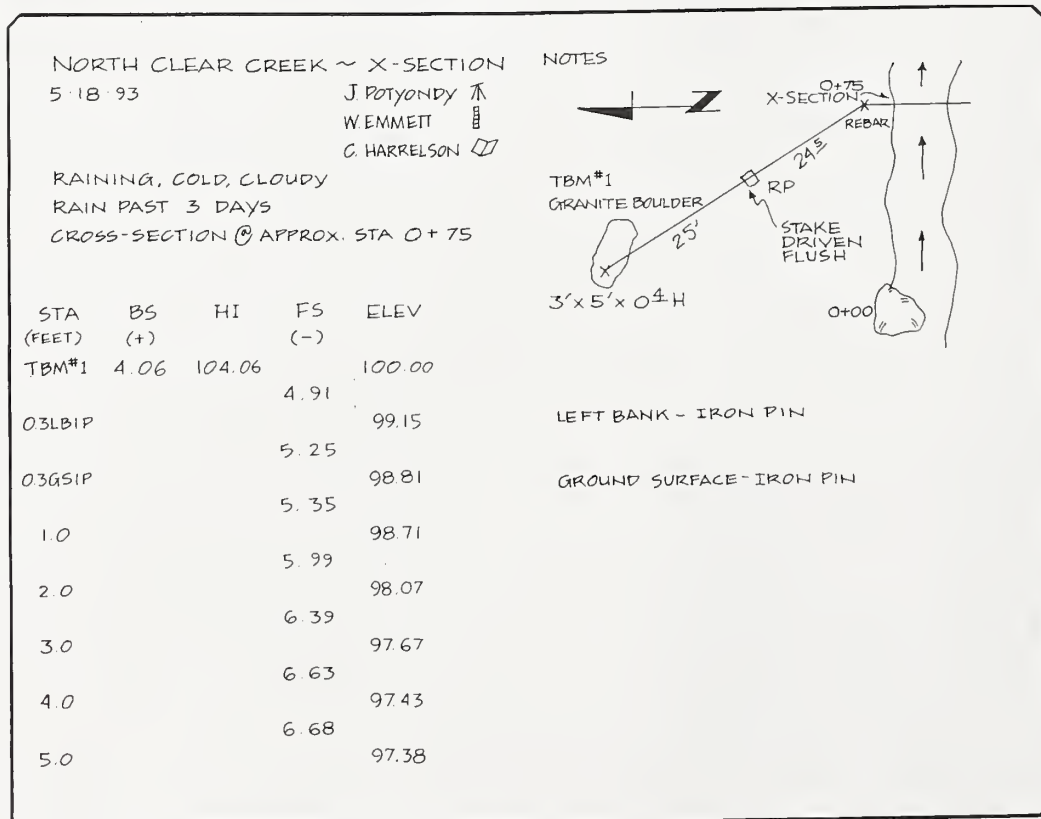 NORTH CLEAR CREEK ~ X-SECTION
5·18·93
J. POTYONDY
W. EMMETT
C. HARRELSON
RAINING, COLD, CLOUDY
RAIN PAST 3 DAYS
CROSS-SECTION @ APPROX. STA 0+75
STA BS HI FS ELEV
(FEET) (+) (-)
TBM#1 4.06 104.06 100.00
4.91
0.3LBIP 99.15
5.25
0.3GSIP 98.81
5.35
1.0 98.71
5.99
2.0 98.07
6.39
3.0 97.67
6.63
4.0 97.43
6.68
5.0 97.38
NOTES
N
0+75
X-SECTION
X
REBAR
24.5
RP
TBM#1
GRANITE BOULDER
25'
STAKE
DRIVEN
FLUSH
X
3' x 5' x 0.4 H
0+00
LEFT BANK - IRON PIN
GROUND SURFACE - IRON PIN